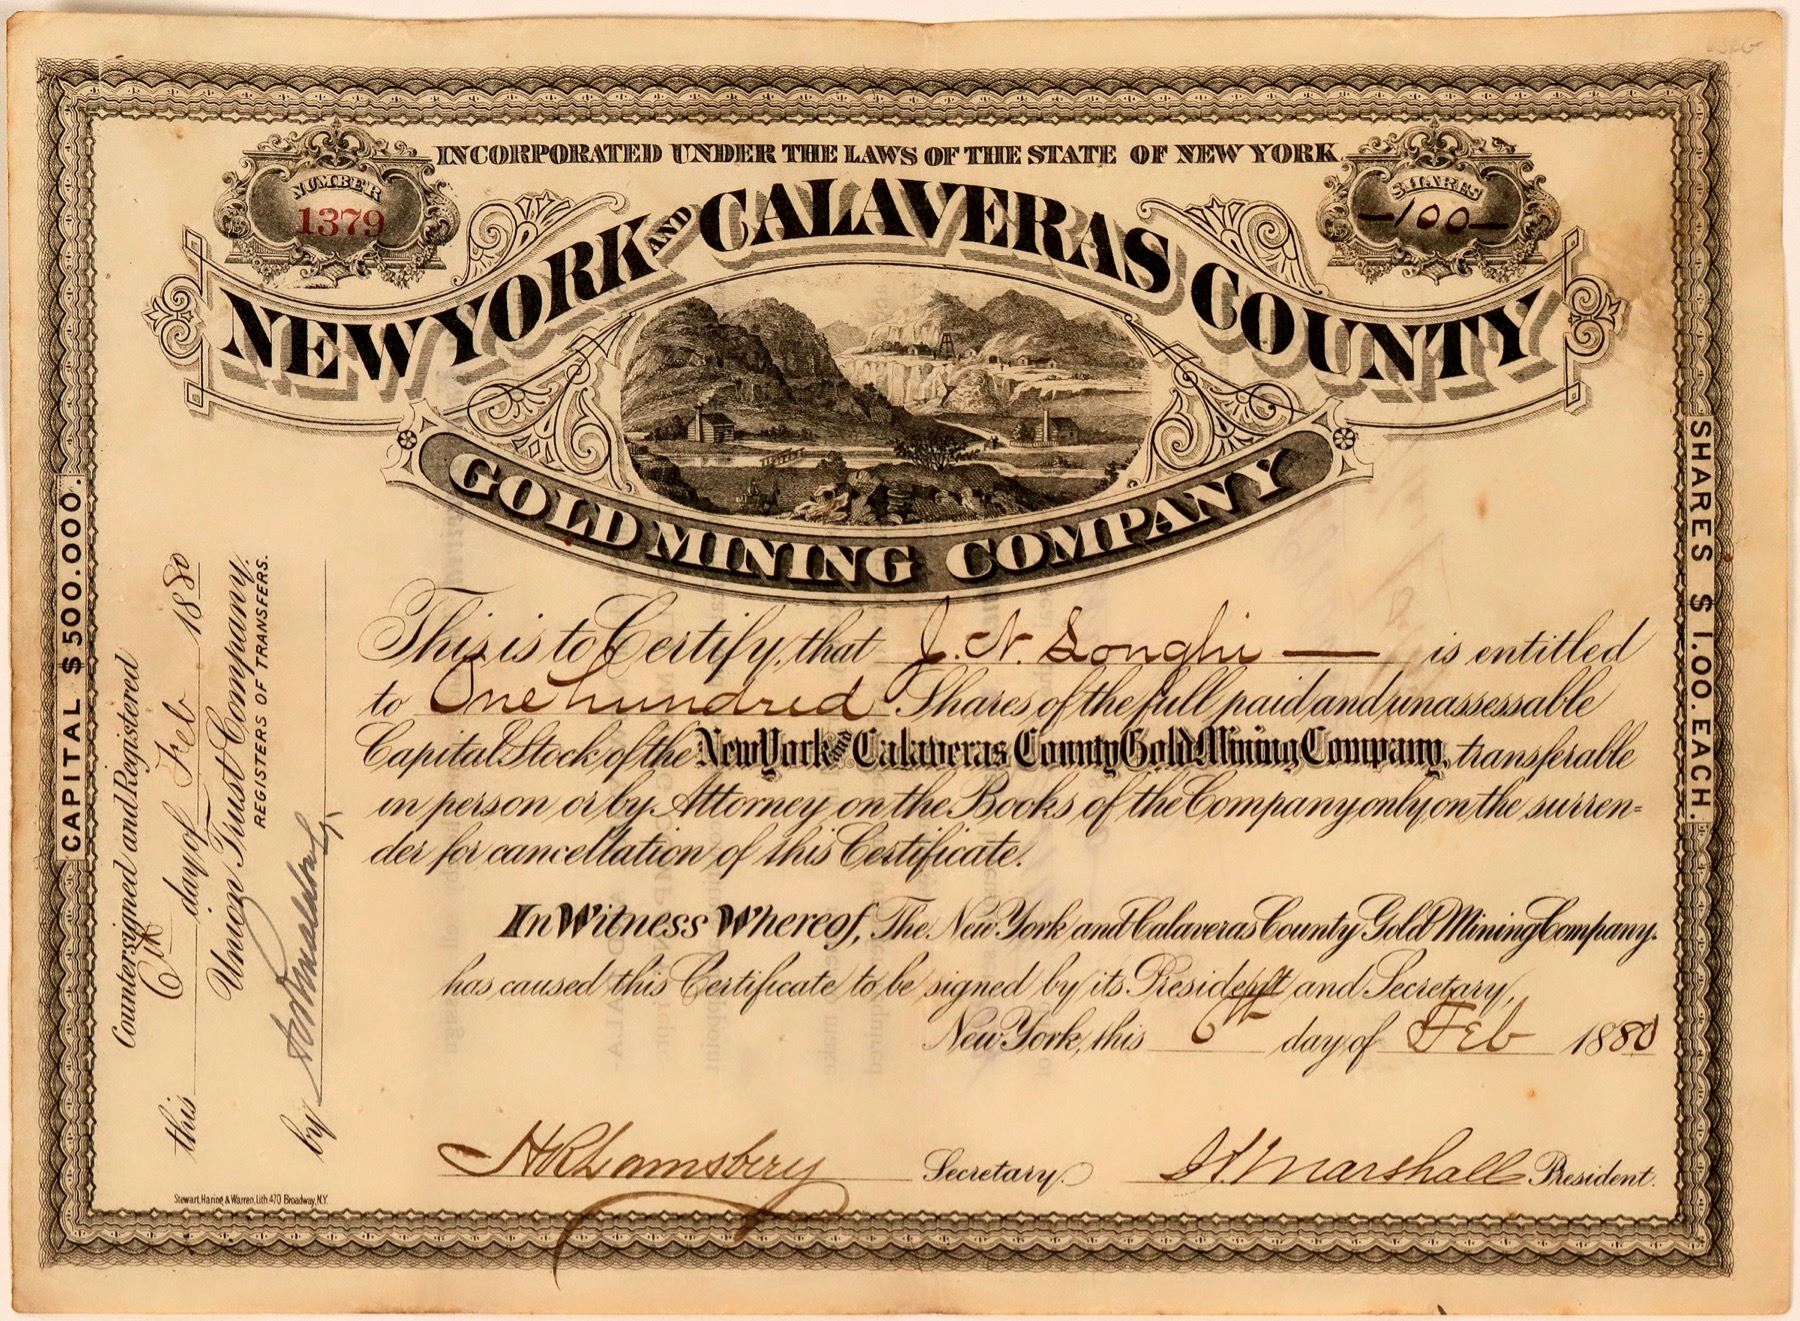 INCORPORATED UNDER THE LAWS OF THE STATE OF NEW YORK
NUMBER
1379
SHARES
—100—
NEW YORK AND CALAVERAS COUNTY
GOLD MINING COMPANY
CAPITAL $500.000.
SHARES $1.00. EACH.
Countersigned and Registered
this 6th day of Feb 1880
Union Trust Company.
REGISTERS OF TRANSFERS.
by
This is to Certify, that J. N. Longhi — is entitled
to One hundred Shares of the full paid and unassessable
Capital Stock of the New York and Calaveras County Gold Mining Company, transferable
in person or by Attorney on the Books of the Company only on the surren=
der for cancellation of this Certificate.
In Witness Whereof, The New York and Calaveras County Gold Mining Company.
has caused this Certificate to be signed by its President and Secretary,
New York, this 6th day of Feb 1880
Secretary.
Marshall President.
Stewart, Haring & Warren, Lith. 470 Broadway, N.Y.